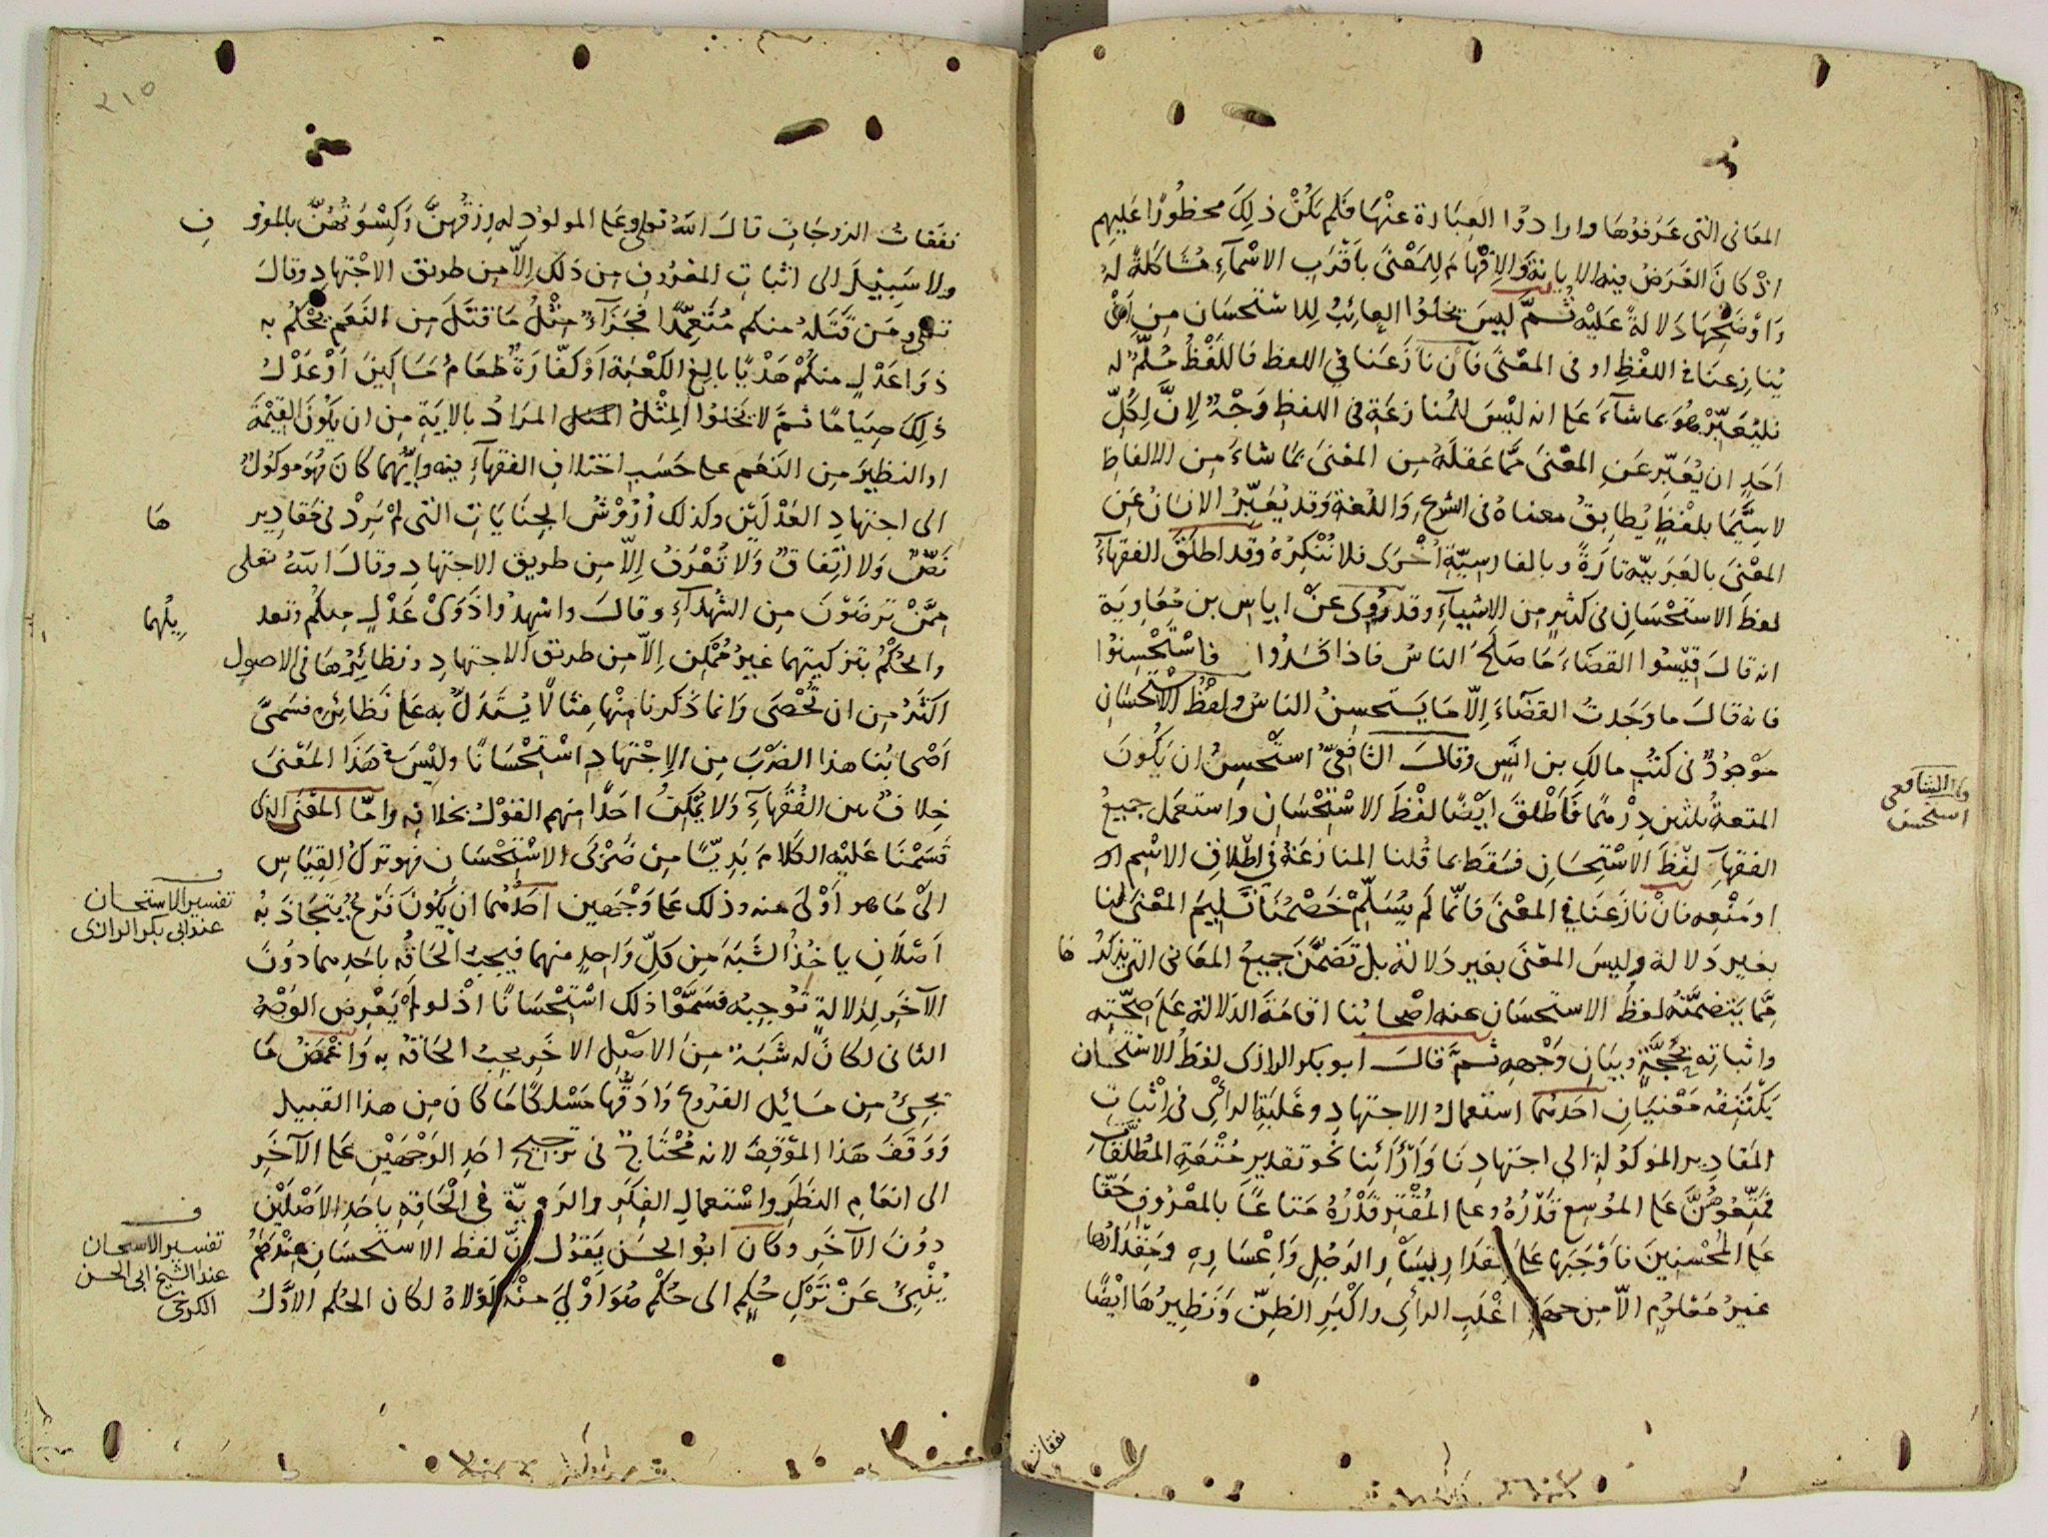 المعاني التي عرفوها وارادوا العبارة عنها فلم يكن ذلك محظورا عليهم
اذ كان الغرض فيه الابانة والافهام للمعنى باقرب الاسماء مشاكلة له
واوضحها دلالة عليه ثم ليس يخلوا العائب للاستحسان من ان
ينازعنا في اللفظ او في المعنى فان نازعنا في اللفظ فاللفظ مسلم له
فليعبر هو بما شاء على انه ليس للمنازعة في اللفظ وجه لان لكل
احد ان يعبر عن المعنى مما عقله من المعنى بما شاء من الالفاظ
لا سيما بلفظ يطابق معناه في الشرع واللغة وقد يعبر الانسان عن
المعنى بالعربية تارة وبالفارسية اخرى فلا ننكره وقد اطلق الفقهاء
لفظ الاستحسان في كثير من الاشياء وقد روى عن اياس بن معاوية
انه قال قيسوا القضاء ما صلح الناس فاذا فسدوا فاستحسنوا
فانه قال ما وجدت القضاء الا ما يستحسن الناس ولفظ الاستحسان
موجود في كتب مالك بن انس وقال الشافعي استحسن ان يكون
المتعة ثلثين درهما فاطلق ايضا لفظ الاستحسان واستعمل جميع
الفقهاء لفظ الاستحسان فسقط بما قلنا المنازعة في اطلاق الاسم
او منعه فان نازعنا في المعنى فانما لم يسلم خصمنا تسليم المعنى لنا
بغير دلالة وليس المعنى بغير دلالة بل تضمن جميع المعاني التي نذكرها
مما يتضمنه لفظ الاستحسان عند اصحابنا اقامة الدلالة على صحته
واثباته بحجة وبيان وجهه ثم قال ابو بكر الرازي لفظ الاستحسان
يكتنفه معنيان احدهما استعمال الاجتهاد وغلبة الرأي في اثبات
المقادير الموكولة الى اجتهادنا وآرائنا نحو تقدير متعة المطلقات
فمتعوهن على الموسع قدره وعلى المقتر قدره متاعا بالمعروف حقا
على المحسنين فاوجبها على مقدار يسار الرجل واعساره ومقدارها
غير معلوم الا من جهة اغلب الرأي واكبر الظن ونظيرها ايضا
وقال الشافعي
استحسن
نفقات
٢١٥
نفقات الزوجات قال الله تعالى وعلى المولود له رزقهن وكسوتهن بالمعروف
ولا سبيل الى اثبات المعروف من ذلك الا من طريق الاجتهاد وقال
تعالى ومن قتله منكم متعمدا فجزاء مثل ما قتل من النعم يحكم به
ذوا عدل منكم هديا بالغ الكعبة او كفارة طعام مساكين او عدل
ذلك صياما ثم لا يخلوا المثل المراد بالاية من ان يكون القيمة
او النظير من النعم على حسب اختلاف الفقهاء فيه وايهما كان فهو موكول
الى اجتهاد العدلين وكذلك اروش الجنايات التي لم يرد في مقاديرها
نص ولا اتفاق ولا تعرف الا من طريق الاجتهاد وقال الله تعالى
ممن ترضون من الشهداء وقال واشهدوا ذوى عدل منكم وتعديلهما
والحكم بتزكيتهما غير ممكن الا من طريق الاجتهاد ونظائرها في الاصول
اكثر من ان تحصى وانما ذكرنا منها مثالا يستدل به على نظائره فسمى
اصحابنا هذا الضرب من الاجتهاد استحسانا وليس في هذا المعنى
خلاف بين الفقهاء ولا يمكن احدا منهم القول بخلافه واما المعنى الذي
قسمنا عليه الكلام بديا من ضربى الاستحسان فهو ترك القياس
الى ما هو اولى منه وذلك على وجهين احدهما ان يكون فرع يتجاذبه
اصلان ياخذ الشبه من كل واحد منهما فيجب الحاقه باحدهما دون
الآخر لدلالة توجبه فسموا ذلك استحسانا اذ لو لم يعرض الوجه
الثاني لكان له شبه من الاصل الاخر يجب الحاقه به واغمض ما
يجئ من مسائل الفروع وادقها مسلكا ما كان من هذا القبيل
ووقف هذا الموقف لانه محتاج في ترجيح احد الوجهين على الآخر
الى انعام النظر واستعمال الفكر والروية في الحاقه باحد الاصلين
دون الآخر وكان ابو الحسن يقول ان لفظ الاستحسان عندهم
ينبئ عن ترك حكم الى حكم هو اولى منه لولاه لكان الحكم الاول
ف
تفسير الاستحسان
عند ابي بكر الرازي
ف
تفسير الاستحسان
عند الشيخ ابي الحسن
الكرخي